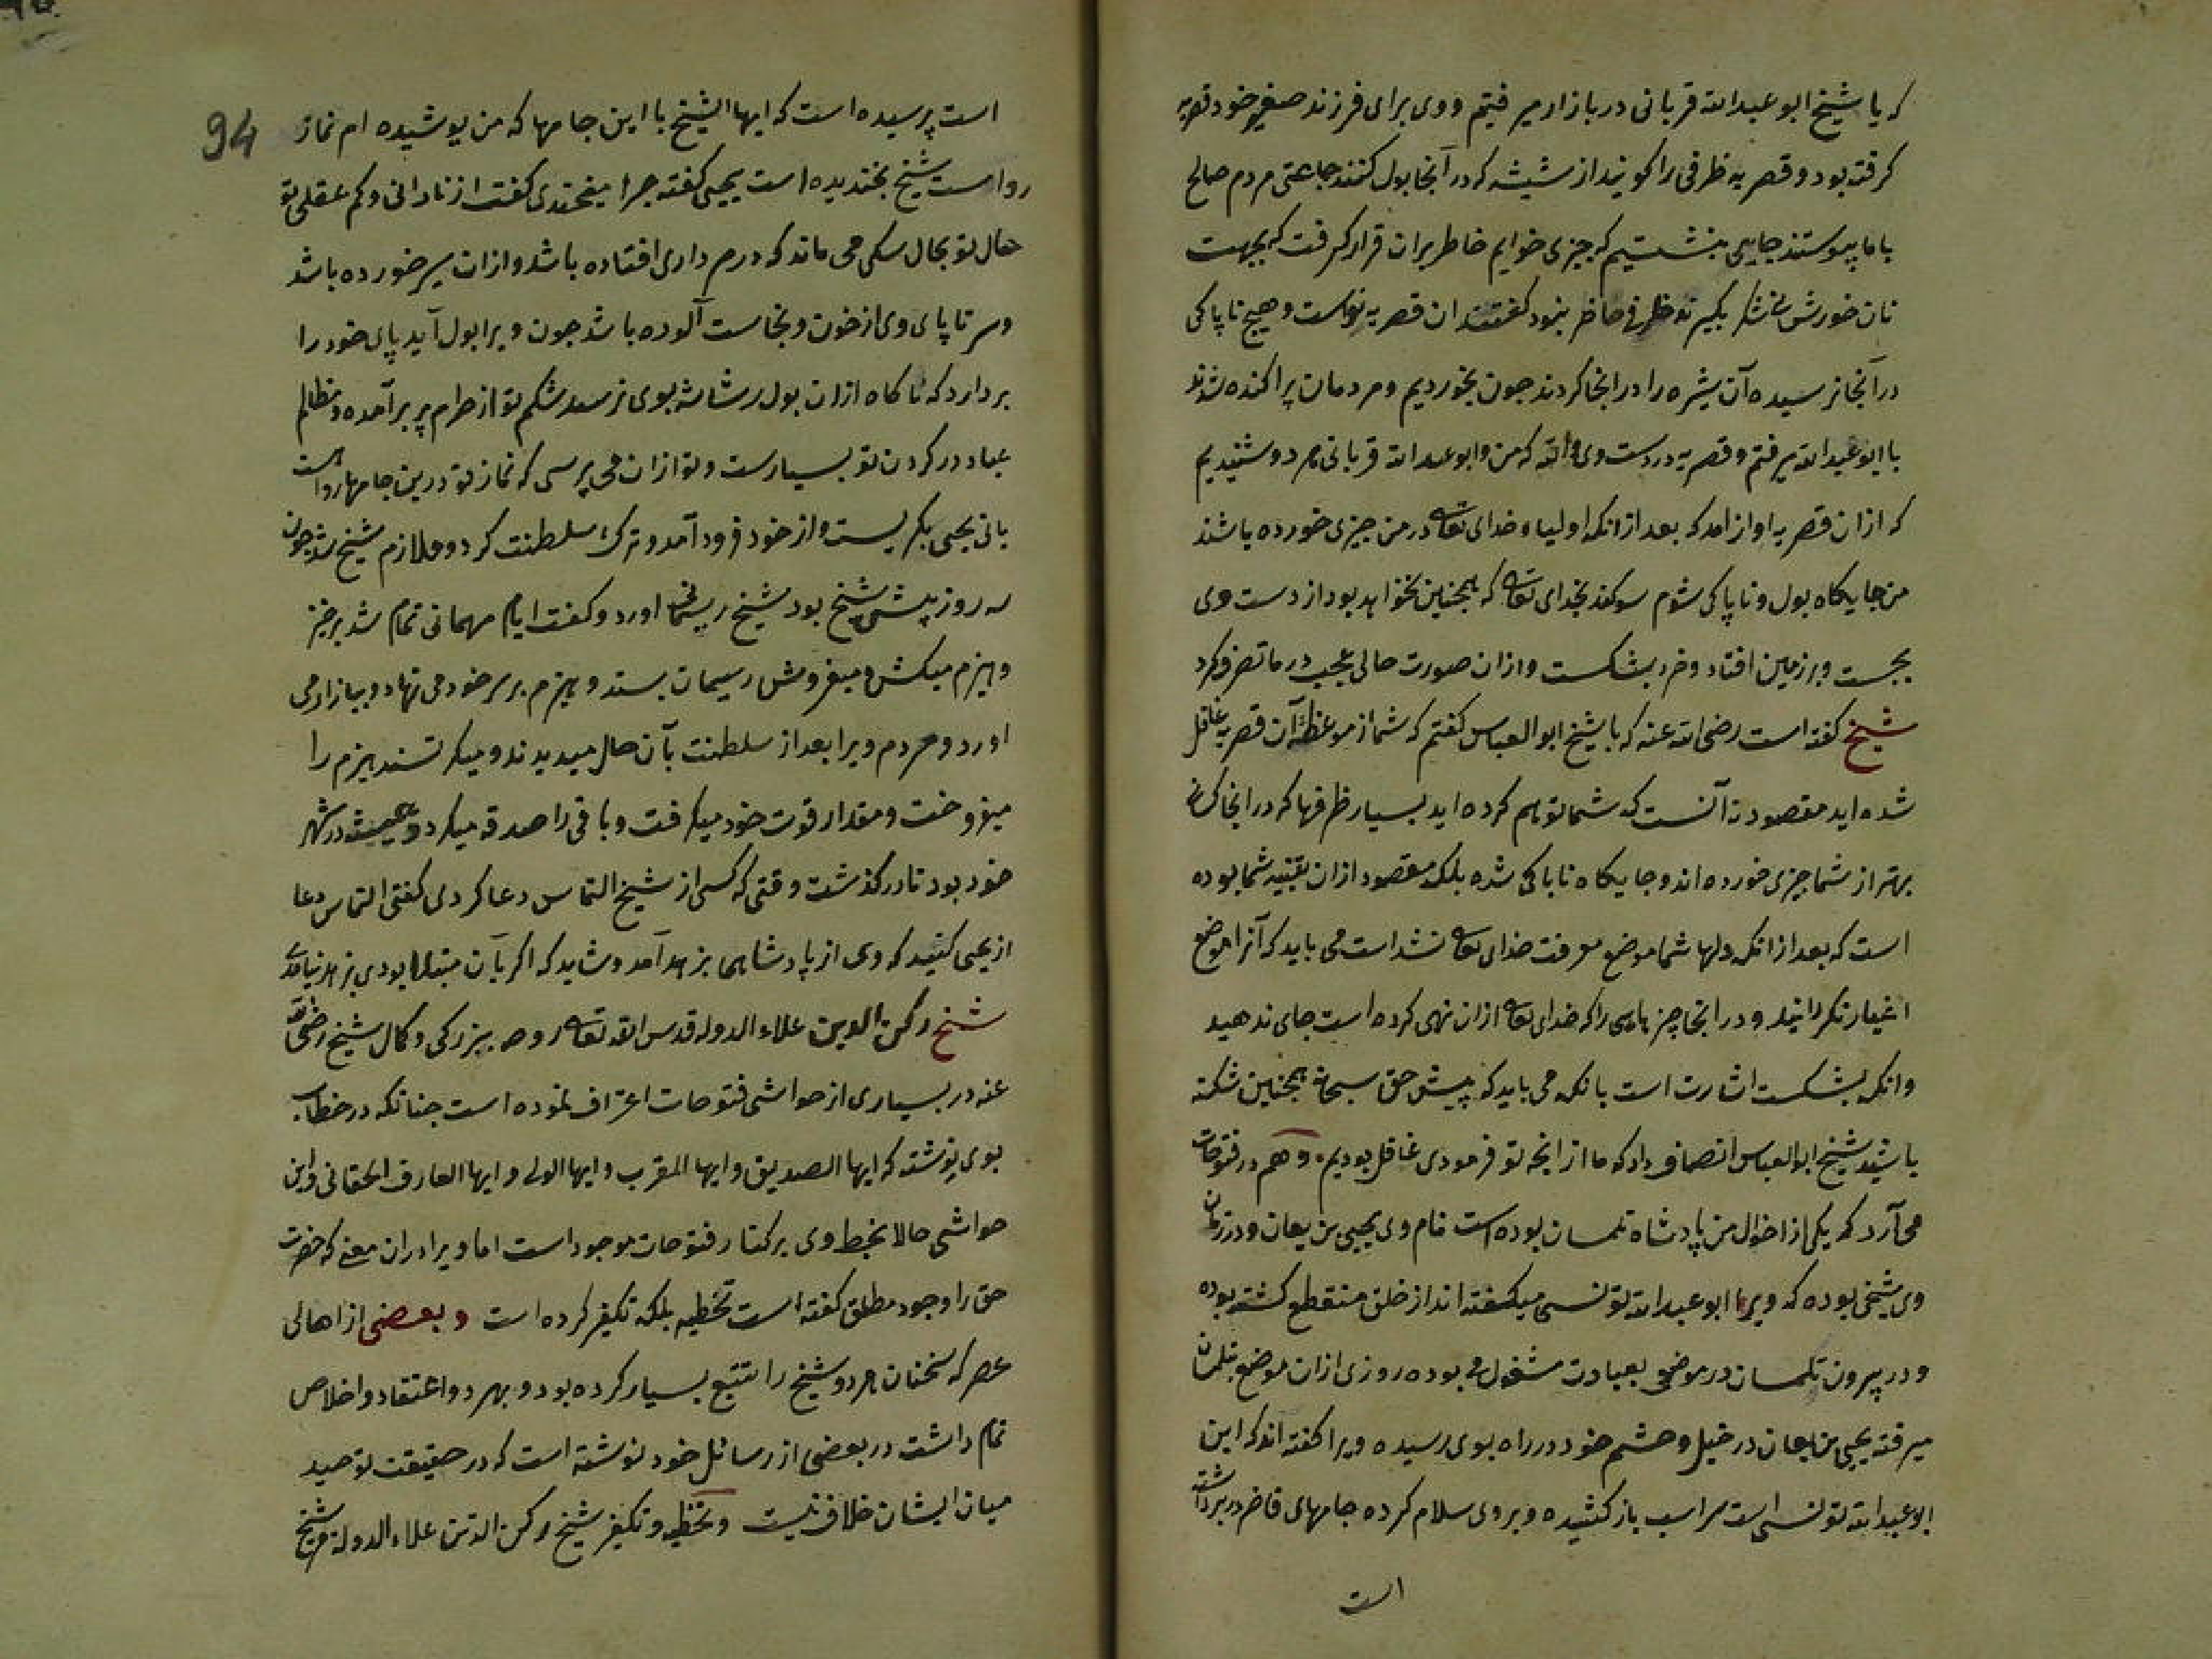 که با شیخ ابو عبدالله قربانی در بازار میرفتیم و وی برای فرزند صغیر خود قصریه
کرفته بود و قصریه ظرفی را کویند از شیشه که در آنجا بول کنند جماعتی مردم صالح
با ما پیوستند جایی بنشستیم که چیزی خوایم خاطر بران قرار کرفت که بجهت
نان خورش شکر بکیرند ظرفی حاضر نبود کفتند ان قصریه نوست و هیچ ناپاکی
در آنجا نرسیده آن شیره را در انجا کردند جون بخوردیم و مردمان پراکنده شدند
با ابو عبدالله میرفتم و قصریه در دست وی والله که من و ابو عبدالله قربانی هر دو شنیدیم
که ازان قصریه اواز امد که بعد از انکه اولیاء خدای تعالی در من جیزی خورده باشند
من جایکاه بول و ناپاکی شوم سوکند بخدای تعالی که همجنین نخواهد بود از دست وی
بجست و بر زمین افتاد و خرد بشکست و ازان صورت حالی عجب در ما تصرف کرد
شیخ کفته است رضی الله عنه که با شیخ ابو العباس کفتم که شما از موعظهٔ آن قصریه غافل
شده اید مقصود نه آنست که شما توهم کرده اید بسیار ظرفها که در انجا کسانی
بهتر از شما جیزی خورده اند و جایکاه ناپاکی شده بلکه مقصود ازان تنبیه شما بوده
است که بعد از انکه دلها شما موضع معرفت خدای تعالی شد است می باید که آنرا موضع
اغیار نکردانید و در انجا چیزهایی را که خدای تعالی ازان نهی کرده است جای ندهید
و انکه بشکست اشارت است بانکه می باید که پیش حق سبحانه همجنین شکسته
باشید شیخ ابو العباس انصاف داد که ما از انجه تو فرمودی غافل بودیم و هم در فتوحات
می آرد که یکی از اخوال من پادشاه تلمسان بوده است نام وی یحیی بن یعان و در زمان
وی شیخی بوده که ویرا ابو عبدالله تونسی میکفته اند از خلق منقطع کشته بوده
و در بیرون تلمسان در موضعی بعبادت مشغول می بوده روزی ازان موضع بتلمسان
میرفته یحیی بن یعان در خیل و حشم خود در راه بوی رسیده ویرا کفته اند که این
ابو عبدالله تونسی است سر اسب باز کشیده و بر وی سلام کرده جامهای فاخر در بر داشته
است
94
است پرسیده است که ایها الشیخ با این جامها که من پوشیده ام نماز
رواست شیخ بخندیده است یحیی کفته جرا میخندی کفت از نادانی و کم عقلی تو
حال تو بحال سکی می ماند که در مرداری افتاده باشد و ازان سیر خورده باشد
و سر تا پای وی از خون و نجاست آلوده باشد جون ویرا بول آید پای خود را
بردارد که ناکاه ازان بول رشاشه بوی نرسد شکم تو از حرام پر برآمده و مظالم
عباد در کردن تو بسیارست و تو ازان می پرسی که نماز تو درین جامها رواست
بانی یحیی بکریست و از خود فرود آمد و ترک سلطنت کرد و ملازم شیخ شد جون
سه روز پیش شیخ بود شیخ ریسمانی اورد و کفت ایام مهمانی تمام شد برخیز
و هیزم میکش و میفروش ریسمان بستد و هیزم بر سر خود می نهاد و ببازار می
اورد و مردم ویرا بعد از سلطنت بآن حال میدیدند و میکریستند هیزم را
میفروخت و مقدار قوت خود میکرفت و باقی را صدقه میکرد و همیشه در شهر
خود بود تا در کذشت وقتی که کسی از شیخ التماس دعا کردی کفتی التماس دعا
از یحیی کنید که وی از پادشاهی بزهد آمد و شاید که اکر بآن مبتلا بودمی بزهد نیامدمی
شیخ رکن الدین علاء الدوله قدس الله تعالی روحه ببزرکی و کمال شیخ رضی الله
عنه در بسیاری از حواشی فتوحات اعتراف نموده است جنانکه در خطاب
بوی نوشته که ایها الصدیق و ایها المقرب و ایها الولی و ایها العارف الحقانی و این
حواشی حالا بخط وی بر کنار فتوحات موجود است اما ویرا دران معنی که حضرت
حق را وجود مطلق کفته است تخطیه بلکه تکفیر کرده است و بعضی از اهالی
عصر که سخنان هر دو شیخ را تتبع بسیار کرده بود و بهر دو اعتقاد و اخلاص
تمام داشت در بعضی از رسائل خود نوشته است که در حقیقت توحید
میان ایشان خلاف نیست و تخطیه و تکفیر شیخ رکن الدین علاء الدوله مر شیخ